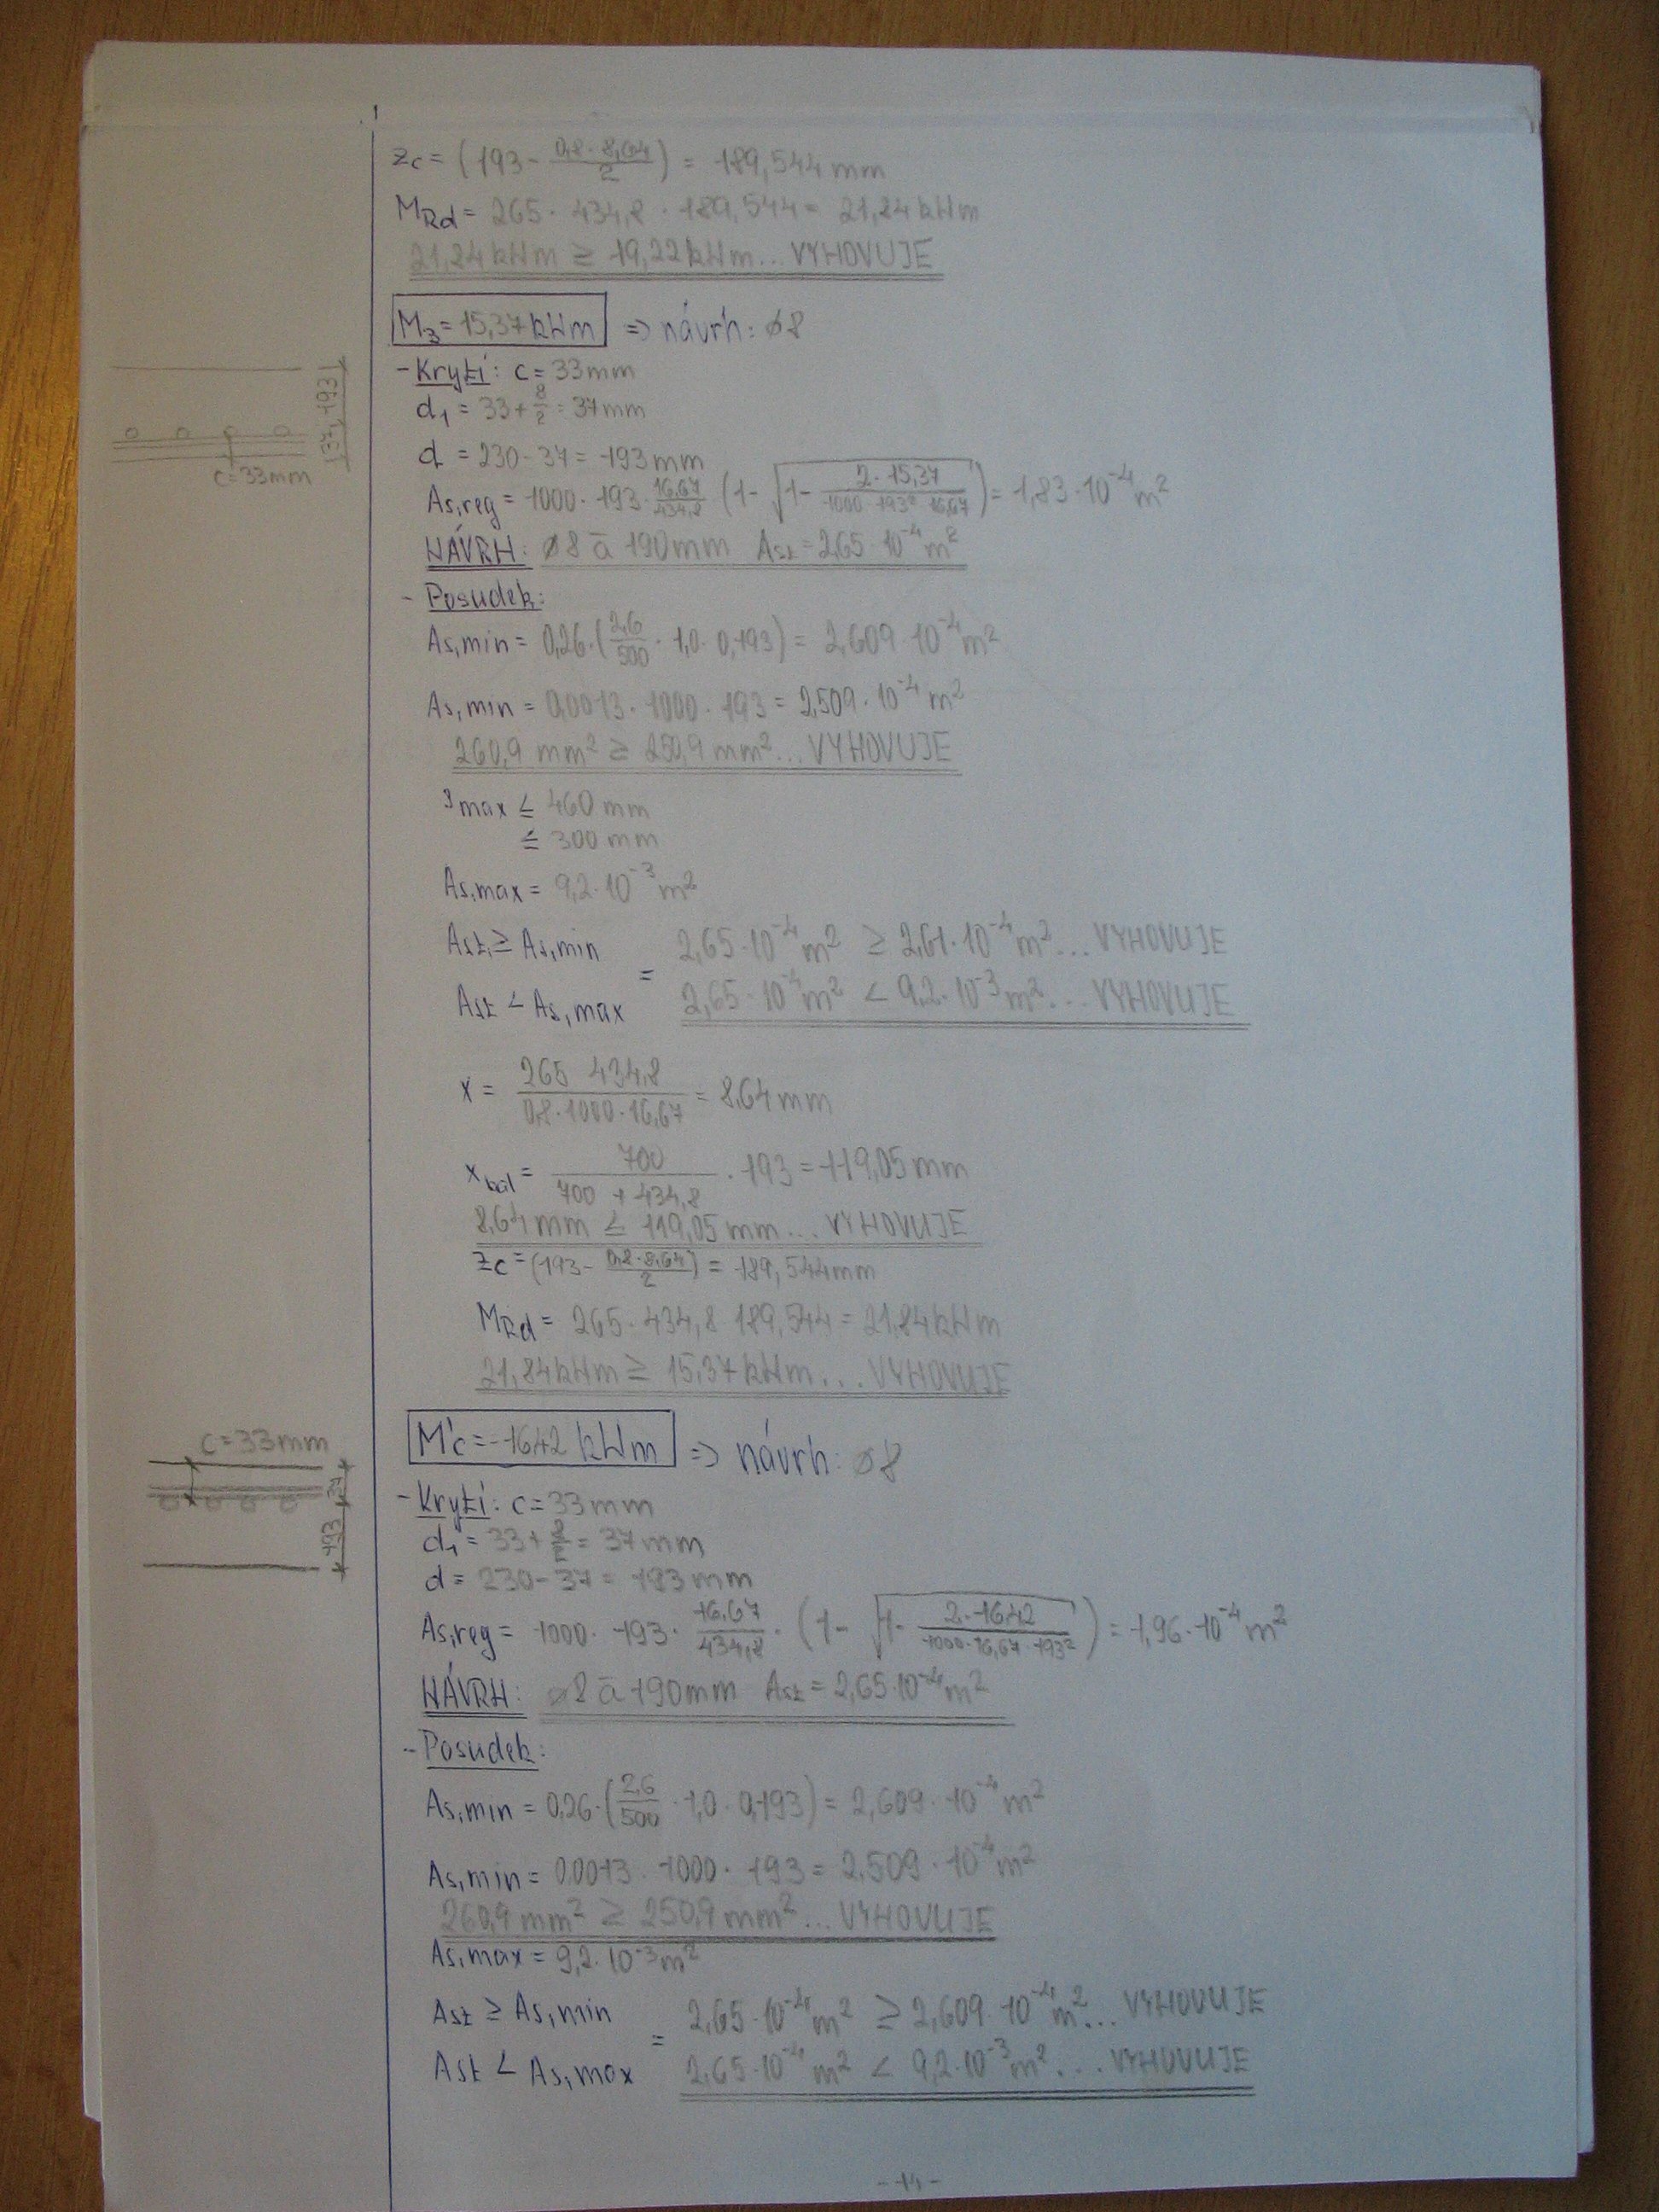 zc = (193 - 0,8·8,64/2) = 189,544 mm
MRd = 265 · 434,8 · 189,544 = 21,84 kNm
21,84 kNm ≥ 19,22 kNm... VYHOVUJE
M3 = 15,37 kNm => návrh: ø8
- Krytí: c = 33 mm
d1 = 33 + 8/2 = 37 mm
d = 230 - 37 = 193 mm
37, 193
c = 33 mm
As,reg = 1000 · 193 · 16,67/434,8 (1 - √(1 - 2·15,37/(1000·193²·16,67))) = 1,83·10⁻⁴ m²
NÁVRH: ø8 ā 190 mm Ast = 2,65·10⁻⁴ m²
- Posudek:
As,min = 0,26·(2,6/500 · 1,0 · 0,193) = 2,609·10⁻⁴ m²
As,min = 0,0013 · 1000 · 193 = 2,509·10⁻⁴ m²
260,9 mm² ≥ 250,9 mm²... VYHOVUJE
smax ≤ 460 mm
≤ 300 mm
As,max = 9,2·10⁻³ m²
Ast ≥ As,min = 2,65·10⁻⁴ m² ≥ 2,61·10⁻⁴ m²... VYHOVUJE
Ast < As,max 2,65·10⁻⁴ m² < 9,2·10⁻³ m²... VYHOVUJE
x = 265 · 434,8/(0,8·1000·16,67) = 8,64 mm
xbal = 700/(700 + 434,8) · 193 = 119,05 mm
8,64 mm ≤ 119,05 mm... VYHOVUJE
zc = (193 - 0,8·8,64/2) = 189,544 mm
MRd = 265 · 434,8 · 189,544 = 21,84 kNm
21,84 kNm ≥ 15,37 kNm... VYHOVUJE
M'c = -16,42 kNm => návrh: ø8
c = 33 mm
37
193
- Krytí: c = 33 mm
d1 = 33 + 8/2 = 37 mm
d = 230 - 37 = 193 mm
As,reg = 1000 · 193 · 16,67/434,8 · (1 - √(1 - 2·16,42/(1000·16,67·193²))) = 1,96·10⁻⁴ m²
NÁVRH: ø8 ā 190 mm Ast = 2,65·10⁻⁴ m²
- Posudek:
As,min = 0,26·(2,6/500 · 1,0 · 0,193) = 2,609·10⁻⁴ m²
As,min = 0,0013 · 1000 · 193 = 2,509·10⁻⁴ m²
260,9 mm² ≥ 250,9 mm²... VYHOVUJE
As,max = 9,2·10⁻³ m²
Ast ≥ As,min = 2,65·10⁻⁴ m² ≥ 2,609·10⁻⁴ m²... VYHOVUJE
Ast < As,max 2,65·10⁻⁴ m² < 9,2·10⁻³ m²... VYHOVUJE
-14-